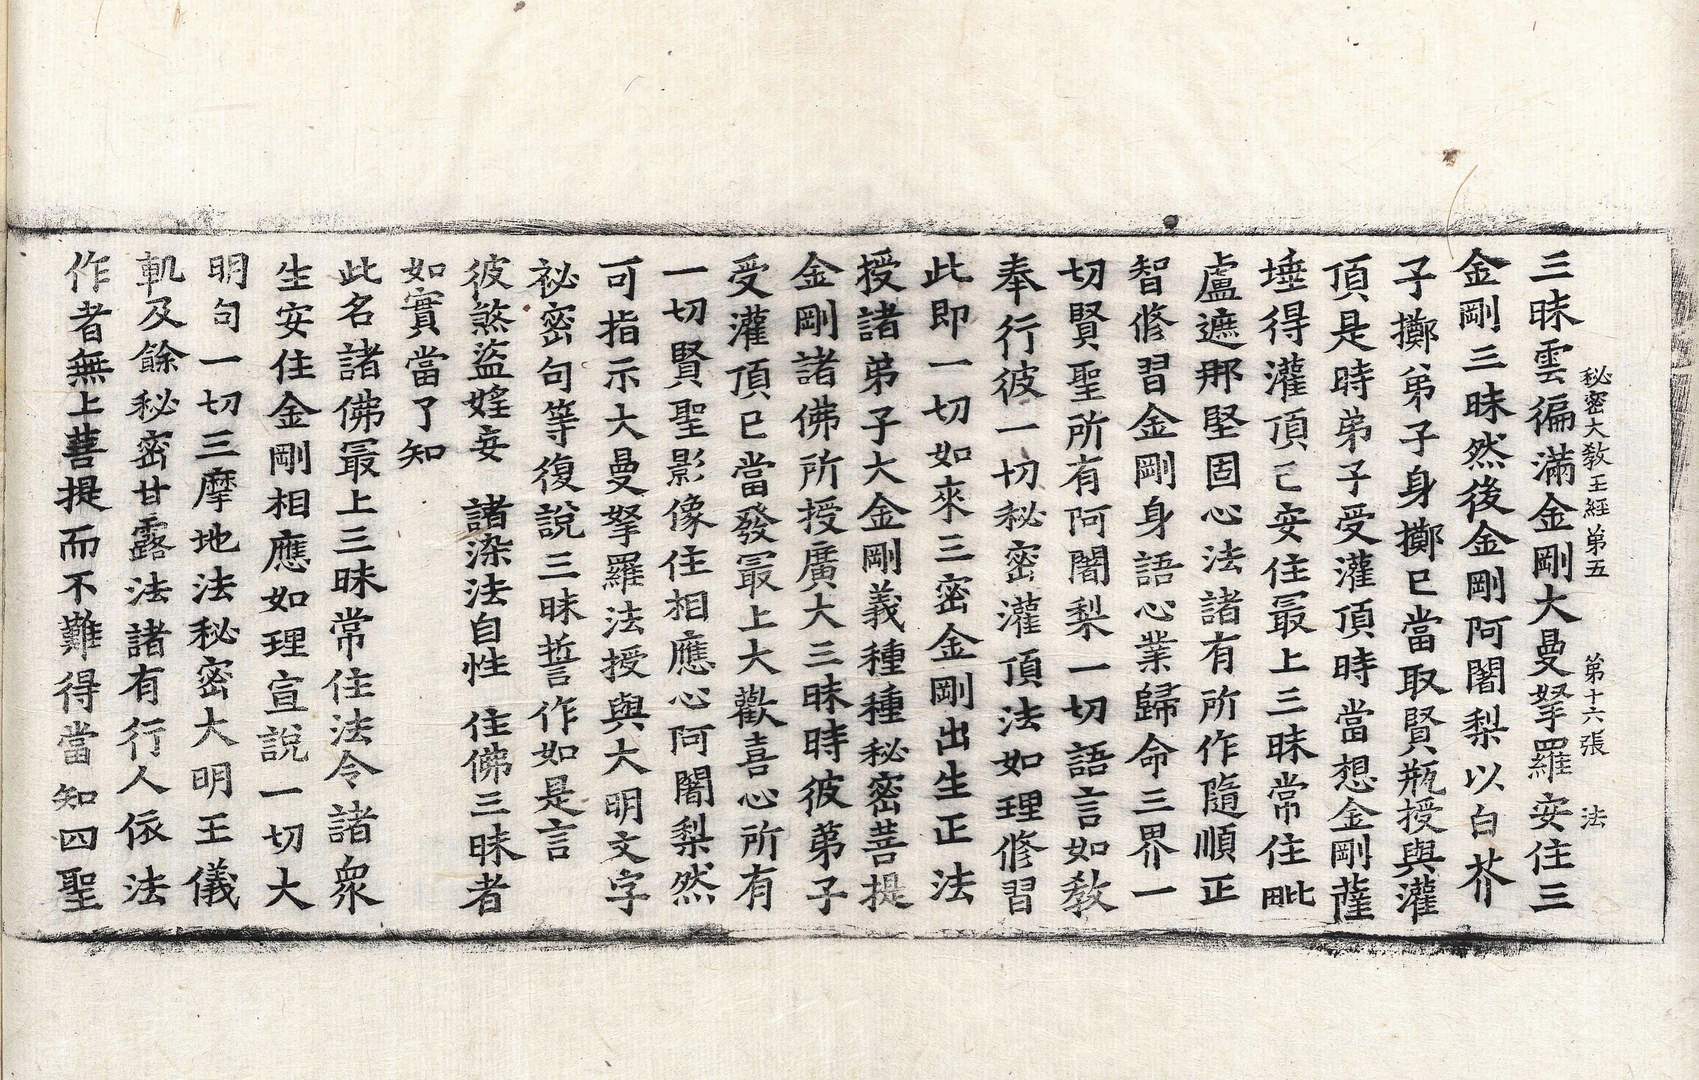 秘密大教王經第五 第十六張 法
三昧雲徧滿金剛大曼拏羅安住三
金剛三昧然後金剛阿闍梨以白芥
子擲弟子身擲已當取賢瓶授與灌
頂是時弟子受灌頂時當想金剛薩
埵得灌頂已安住最上三昧常住毗
盧遮那堅固心法諸有所作隨順正
智修習金剛身語心業歸命三界一
切賢聖所有阿闍梨一切語言如教
奉行彼一切秘密灌頂法如理修習
此即一切如來三密金剛出生正法
授諸弟子大金剛義種種秘密菩提
金剛諸佛所授廣大三昧時彼弟子
受灌頂已當發最上大歡喜心所有
一切賢聖影像住相應心阿闍梨然
可指示大曼拏羅法授與大明文字
祕密句等復說三昧誓作如是言
彼煞盜婬妄 諸染法自性 住佛三昧者
如實當了知
此名諸佛最上三昧常住法令諸衆
生安住金剛相應如理宣說一切大
明句一切三摩地法秘密大明王儀
軌及餘秘密甘露法諸有行人依法
作者無上菩提而不難得當知四聖